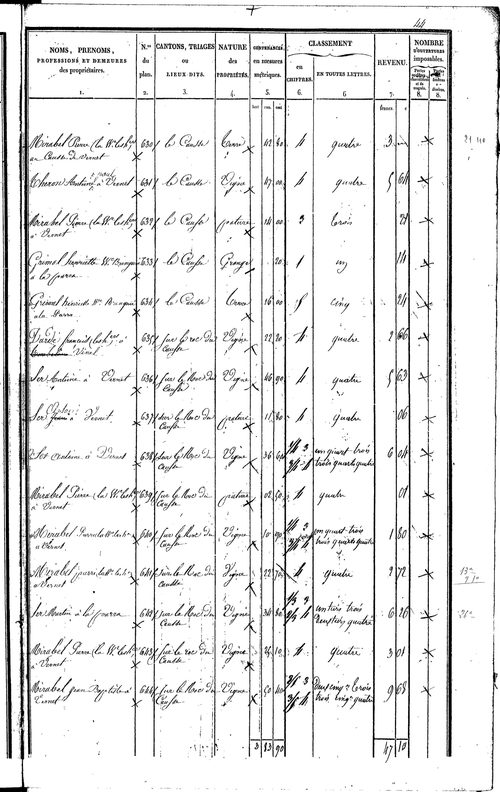 44
NOMS, PRENOMS,
PROFESSIONS ET DEMEURES
des propriétaires.
1.
N.os
du
plan.
2.
CANTONS, TRIAGES
ou
LIEUX DITS.
3.
NATURE
des
PROPRIÉTÉS.
4.
CONTENANCES
en mesures
métriques.
5.
CLASSEMENT
en
CHIFFRES.
6.
EN TOUTES LETTRES.
6
REVENU.
7.
francs. c
NOMBRE
D'OUVERTURES
imposables.
8.
8.
Mirabel Pierre (la Ve
au Causse de Vernet 630 le Causse Terre 42 80 4 quatre 3
Theron Antoine à Vernet 631 le Causse Vigne 47 00 4 quatre 5 64
Mirabel Pierre (la Ve
à Vernet 632 le Causse pature 14 00 3 trois 21
Grimal henriette Ve
à la parra 633 le Causse 20 1 un 14
Grimal henriette Ve
à la parra 634 le Causse terre 16 00 5 cinq 24
Dardé francois
Vernet 635 sur le roc du
Causse Vigne 22 20 4 quatre 2 66
Ser Antoine à Vernet 636 sur le Roc du
Causse Vigne 46 90 4 quatre 5 63
Ser à Vernet 637 sur le Roc du
Causse pature 11 80 4 quatre 06
Ser Antoine à Vernet 638 sur le Roc du
Causse Vigne 36 60 1/4 3 un quart trois 6 04
3/4 4 trois quarts quatre
Mirabel Pierre (la Ve
à Vernet 639 sur le Roc du
Causse pature 02 50 4 quatre 01
Mirabel Pierre la Ve
à Vernet 640 sur le Roc du
Causse Vigne 10 90 1/4 3 un quart trois 1 80
3/4 4 trois quarts quatre
Mirabel pierre la Ve
à Vernet 641 sur le Roc du
Causse Vigne 22 70 4 quatre 2 72
Ser Martin à la parra 642 sur le Roc du
Causse Vigne 34 80 1/3 3 un tiers trois 6 26
2/3 4 deux tiers quatre
Mirabel Pierre (la Ve
à Vernet 643 sur le Roc du
Causse Vigne 25 10 4 quatre 3 01
Mirabel jean Baptiste à
Vernet 644 sur le Roc du
Causse Vigne 50 40 2/5 3 Deux cinq.e trois 9 68
3/5 4 trois cinq.e quatre
3 83 90 47 10